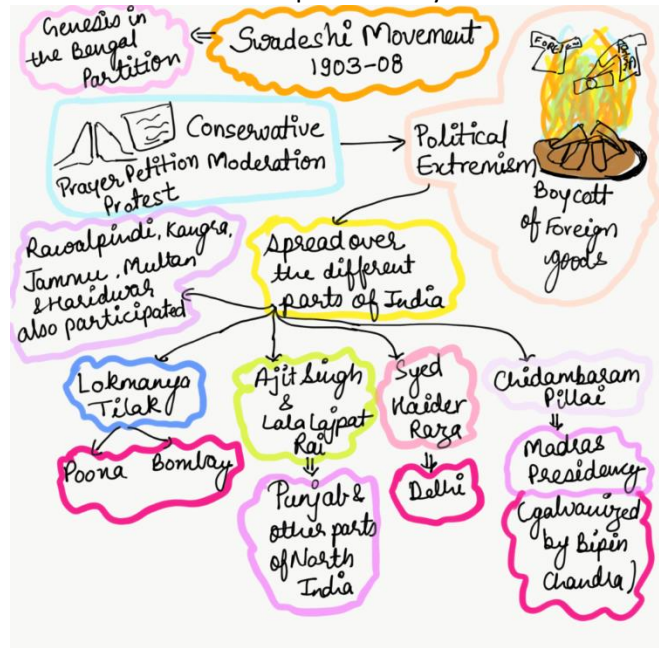 Genesis in
the Bengal
Partition
Swadeshi Movement
1903-08
Conservative
Prayer Petition Moderation
Protest
Political
Extremism
FOREIGN
Boycott
of Foreign
goods
Rawalpindi, Kangra,
Jammu, Multan
& Haridwar
also participated
Spread over
the different
parts of India
Lokmanya
Tilak
Poona Bombay
Ajit Singh
&
Lala Lajpat
Rai
Punjab &
other parts
of North
India
Syed
Haider
Raza
Delhi
Chidambaram
Pillai
Madras
Presidency
(galvanized
by Bipin
Chandra)